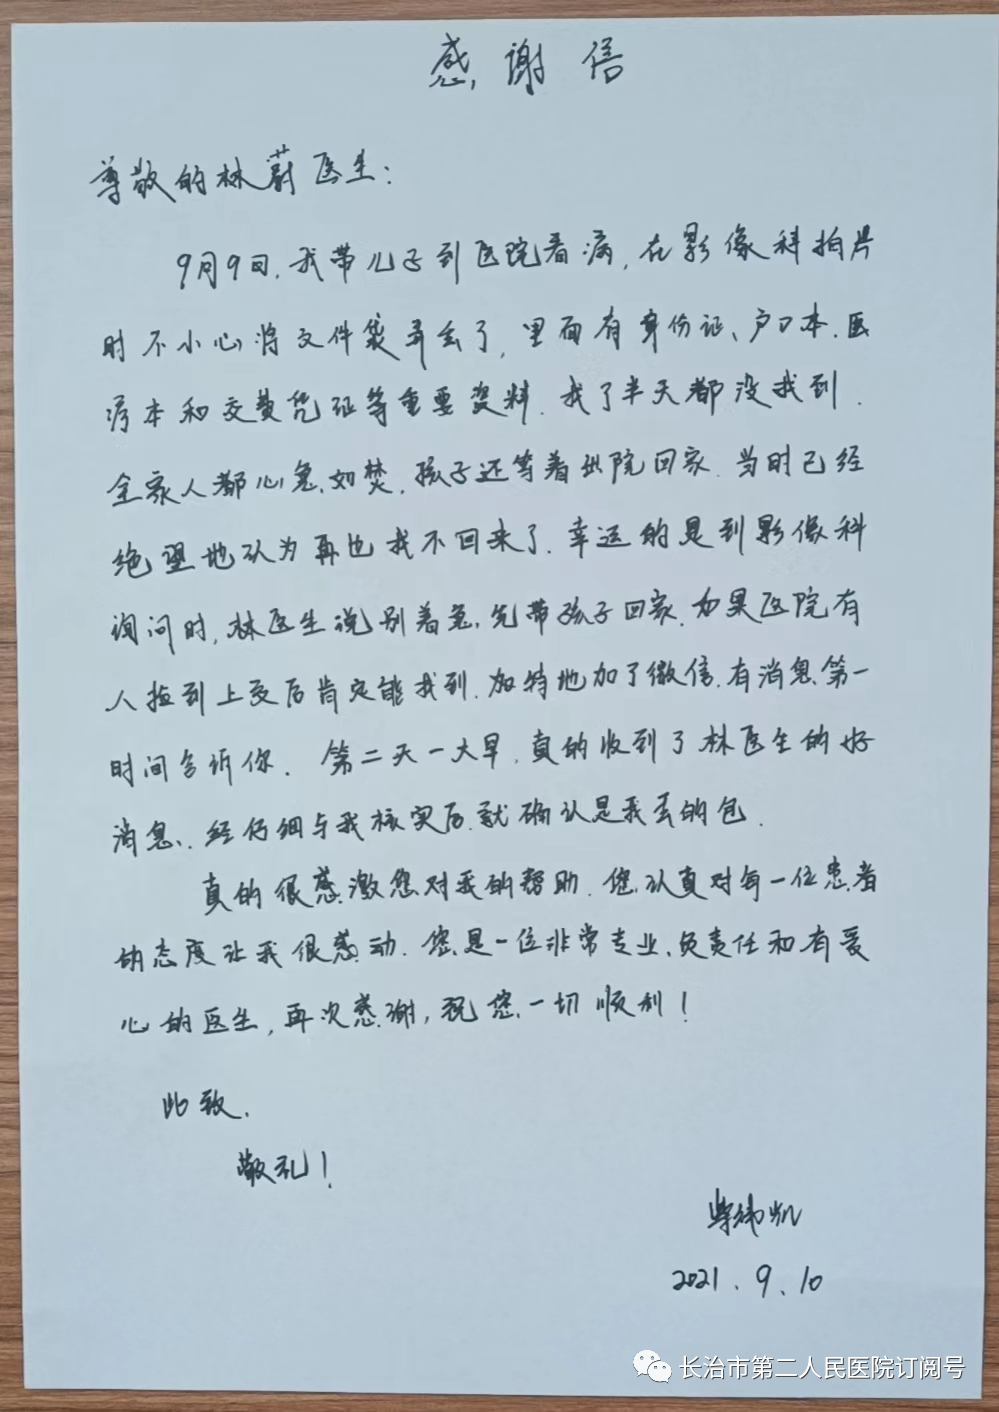 感谢信
尊敬的林蔚医生:
9月9日,我带儿子到医院看病,在影像科拍片
时不小心将文件袋弄丢了,里面有身份证、户口本、医
疗本和交费凭证等重要资料.找了半天都没找到.
全家人都心急如焚,孩子还等着出院回家.当时已经
绝望地认为再也找不回来了.幸运的是到影像科
询问时,林医生说别着急,先带孩子回家.如果医院有
人捡到上交后肯定能找到.加特地加了微信.有消息第一
时间告诉你. 第二天一大早,真的收到了林医生的好
消息,经仔细与我核实后,就确认是我丢的包.
真的很感激您对我的帮助.您认真对每一位患者
的态度让我很感动.您是一位非常专业、负责任和有爱
心的医生,再次感谢,祝您一切顺利!
此致,
敬礼!
2021.9.10
长治市第二人民医院订阅号